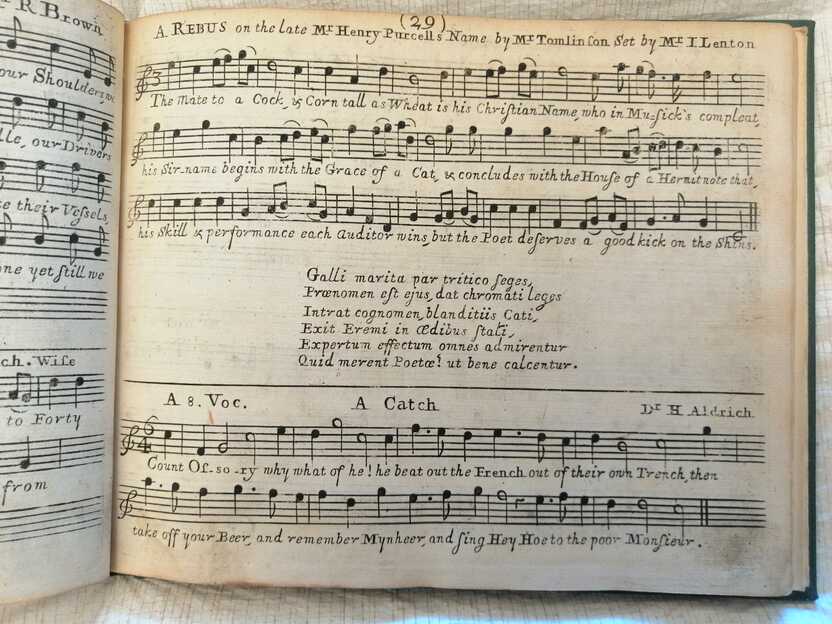 R Brown
our Shoulders, we
lle, our Drivers
te their Veſsels,
one yet ſtill we
ch. Wiſe
to Forty
from
(29)
A REBUS on the late Mr Henry Purcell's Name by Mr Tomlinſon Set by Mr I Lenton
3
The Mate to a Cock, & Corn tall as Wheat is his Chriſtian Name, who in Mu-ſick's compleat,
his Sir-name begins with the Grace of a Cat, & concludes with the Houſe of a Hermit note that,
his Skill & performance each Auditor wins, but the Poet deſerves a good kick on the Shins.
Galli marita par tritico ſeges,
Prænomen eſt ejus, dat chromati leges
Intrat cognomen, blanditiis Cati,
Exit Eremi in Ædibus ſtati,
Expertum effectum omnes admirentur
Quid merent Poetæ? ut bene calcentur.
A 8. Voc. A Catch Dr H Aldrich
6
4
Count Of-so-ry why what of he! he beat out the French out of their own Trench, then
take off your Beer, and remember Mynheer, and ſing Hey Hoe to the poor Monſieur.